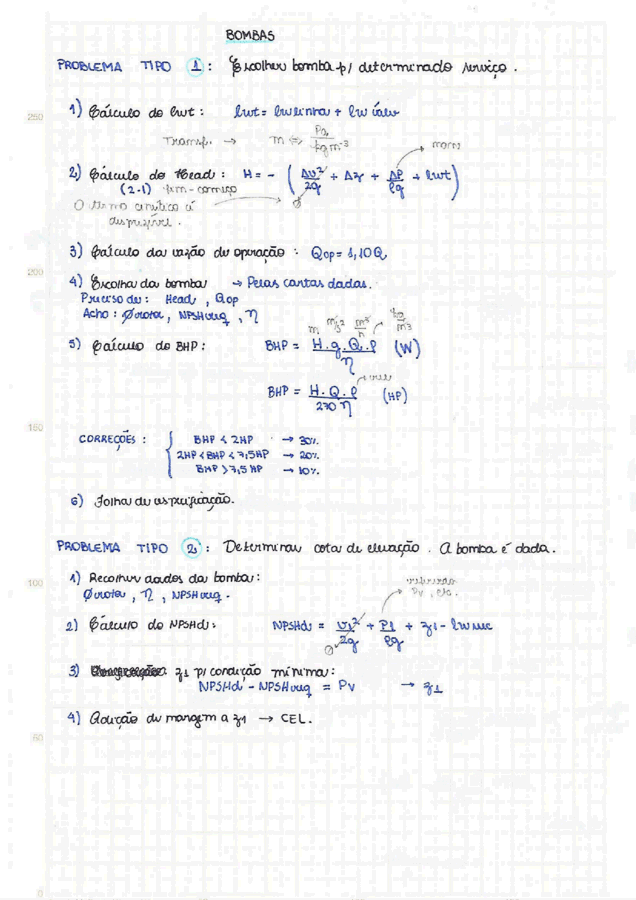 BOMBAS
PROBLEMA TIPO 1: Escolher bomba p/ determinado serviço.
250
1) Cálculo do lwt: lwt = lwlinha + lw válv
Transf. → m ⇔ Pa/kg m⁻³
2) Cálculo do Head: H = - (Δv²/2g + Δz + ΔP/ρg + lwt)
(2-1) fim-começo
O termo cinético é
desprezível.
3) Cálculo da vazão de operação: Qop = 1,10Q
200
4) Escolha da bomba → Pelas cartas dadas.
Preciso de: Head, Qop
Acho: Ørotor, NPSHreq, η
m m/s² m³/h kg/m³
5) Cálculo do BHP: BHP = H.g.Q.ρ/η (W)
BHP = H.Q.ρ/270 η (HP)
150
CORREÇÕES: { BHP < 2HP → 30%
2HP < BHP < 7,5HP → 20%
BHP > 7,5HP → 10%
6) Folha de especificação.
PROBLEMA TIPO 2: Determinar cota de elevação. A bomba é dada.
100
1) Recolher dados da bomba:
Ørotor, η, NPSHreq.
Pv, etc.
2) Cálculo do NPSHd: NPSHd = v1²/2g + P1/ρg + z1 - lwsuc
0
3) z1 p/ condição mínima:
NPSHd - NPSHreq = Pv → z1
4) Adição de margem a z1 → CEL.
50
0